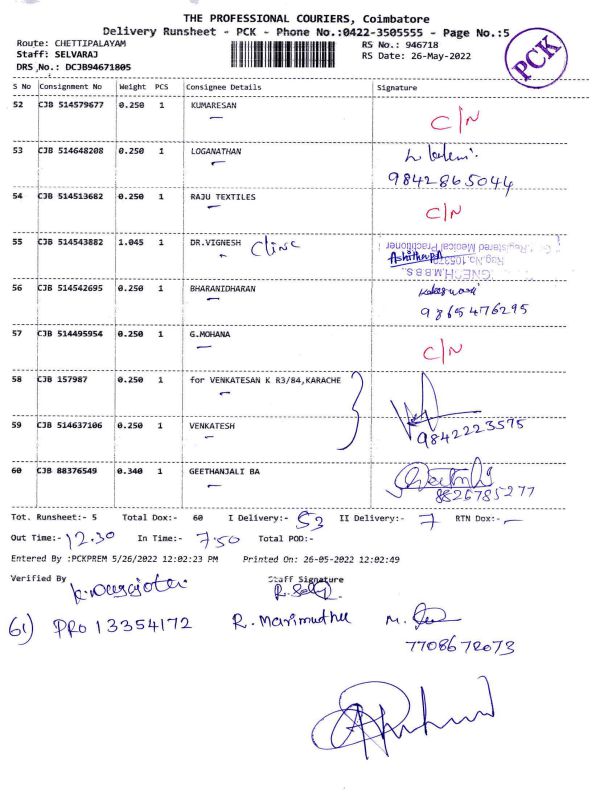 THE PROFESSIONAL COURIERS, Coimbatore
Delivery Runsheet - PCK - Phone No.:0422-3505555 - Page No.:5
Route: CHETTIPALAYAM RS No.: 946718
Staff: SELVARAJ RS Date: 26-May-2022
DRS No.: DCJB94671805
PCK
S No Consignment No Weight PCS Consignee Details Signature
52 CJB 514579677 0.250 1 KUMARESAN C/N
53 CJB 514648208 0.250 1 LOGANATHAN
9842865044
54 CJB 514513682 0.250 1 RAJU TEXTILES C/N
55 CJB 514543882 1.045 1 DR.VIGNESH Clinc
Registered Medical Practitioner
56 CJB 514542695 0.250 1 BHARANIDHARAN
9865476295
57 CJB 514495954 0.250 1 G.MOHANA C/N
58 CJB 157987 0.250 1 for VENKATESAN K R3/84,KARACHE
59 CJB 514637106 0.250 1 VENKATESH
9842223575
60 CJB 88376549 0.340 1 GEETHANJALI BA
8826785277
Tot. Runsheet:- 5 Total Dox:- 60 I Delivery:- 53 II Delivery:- 7 RTN Dox:- -
Out Time:- 12.30 In Time:- 7.50 Total POD:-
Entered By :PCKPREM 5/26/2022 12:02:23 PM Printed On: 26-05-2022 12:02:49
Verified By Staff Signature
61) PRO 13354172 R. Marimuthu
7708672073